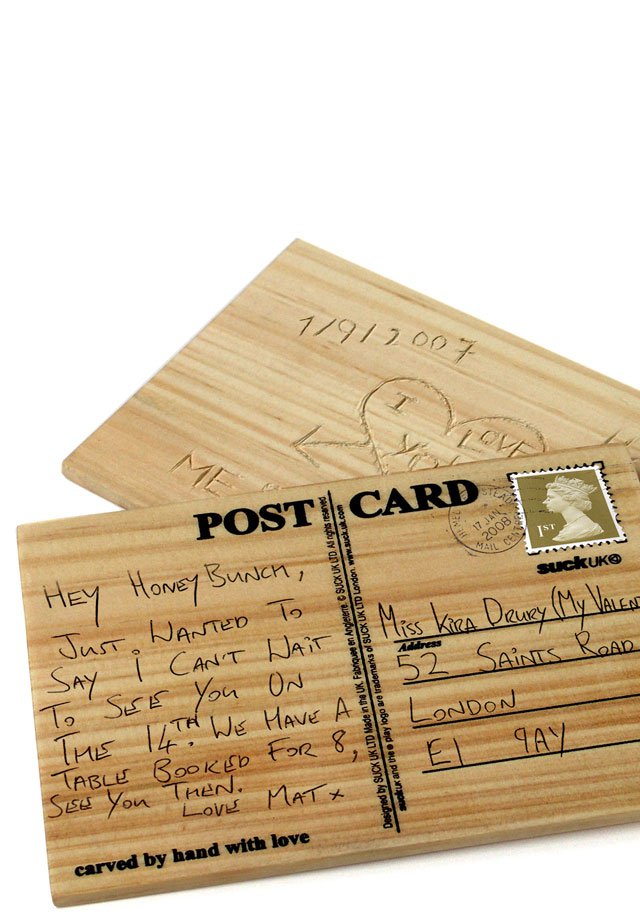 1/9/2007
I
LOVE
YOU
ME
POST CARD
HEY HONEYBUNCH,
JUST WANTED TO
SAY I CAN'T WAIT
TO SEE YOU ON
THE 14TH. WE HAVE A
TABLE BOOKED FOR 8,
SEE YOU THEN.
LOVE MAT x
carved by hand with love
Designed by SUCK UK LTD Made in the UK. Fabriquee en Angleterre. © SUCK UK LTD All rights reserved
suckUK and the play logo are trademarks of SUCK UK LTD London. www.suckuk.com
MAIL CENTRE
17 JAN
2008
1ST
suckUK
MISS KIRA DRURY (MY VALENT
Address
52 SAINTS ROAD
LONDON
E1 9AY